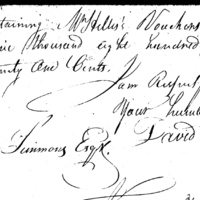 taining Mr Hillis's Vouchers
thousand eight hundred
One Cents.
I am Respect
Your humbl
David
Simmons Esqr.